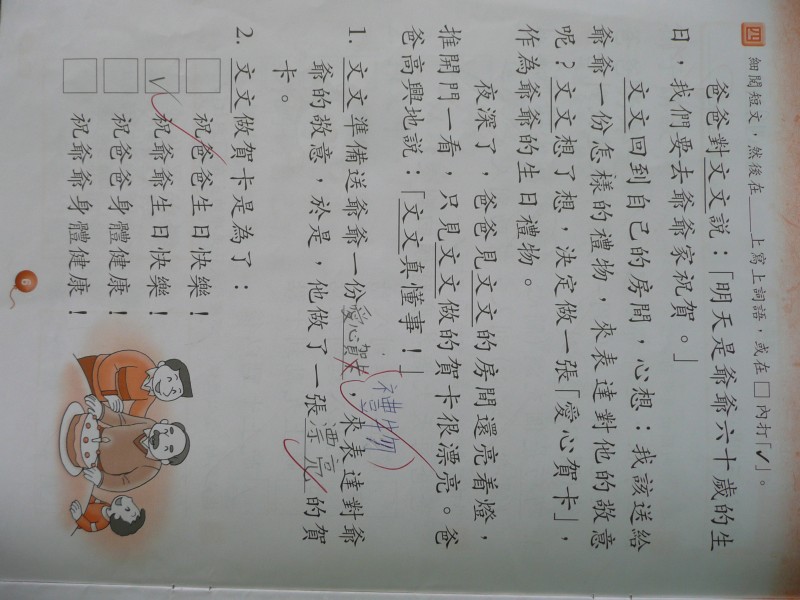 四 細閱短文，然後在____上寫上詞語，或在□內打「✓」。
爸爸對文文說：「明天是爺爺六十歲的生
日，我們要去爺爺家祝賀。」
文文回到自己的房間，心想：我該送給
爺爺一份怎樣的禮物，來表達對他的敬意
呢？文文想了想，決定做一張「愛心賀卡」，
作為爺爺的生日禮物。
夜深了，爸爸見文文的房間還亮着燈，
推開門一看，只見文文做的賀卡很漂亮。爸
爸高興地說：「文文真懂事！」
1. 文文準備送爺爺一份愛心賀卡（禮物），來表達對爺
爺的敬意，於是，他做了一張漂亮的賀
卡。
2. 文文做賀卡是為了：
□ 祝爸爸生日快樂！
✓ 祝爺爺生日快樂！
□ 祝爸爸身體健康！
□ 祝爺爺身體健康！
6